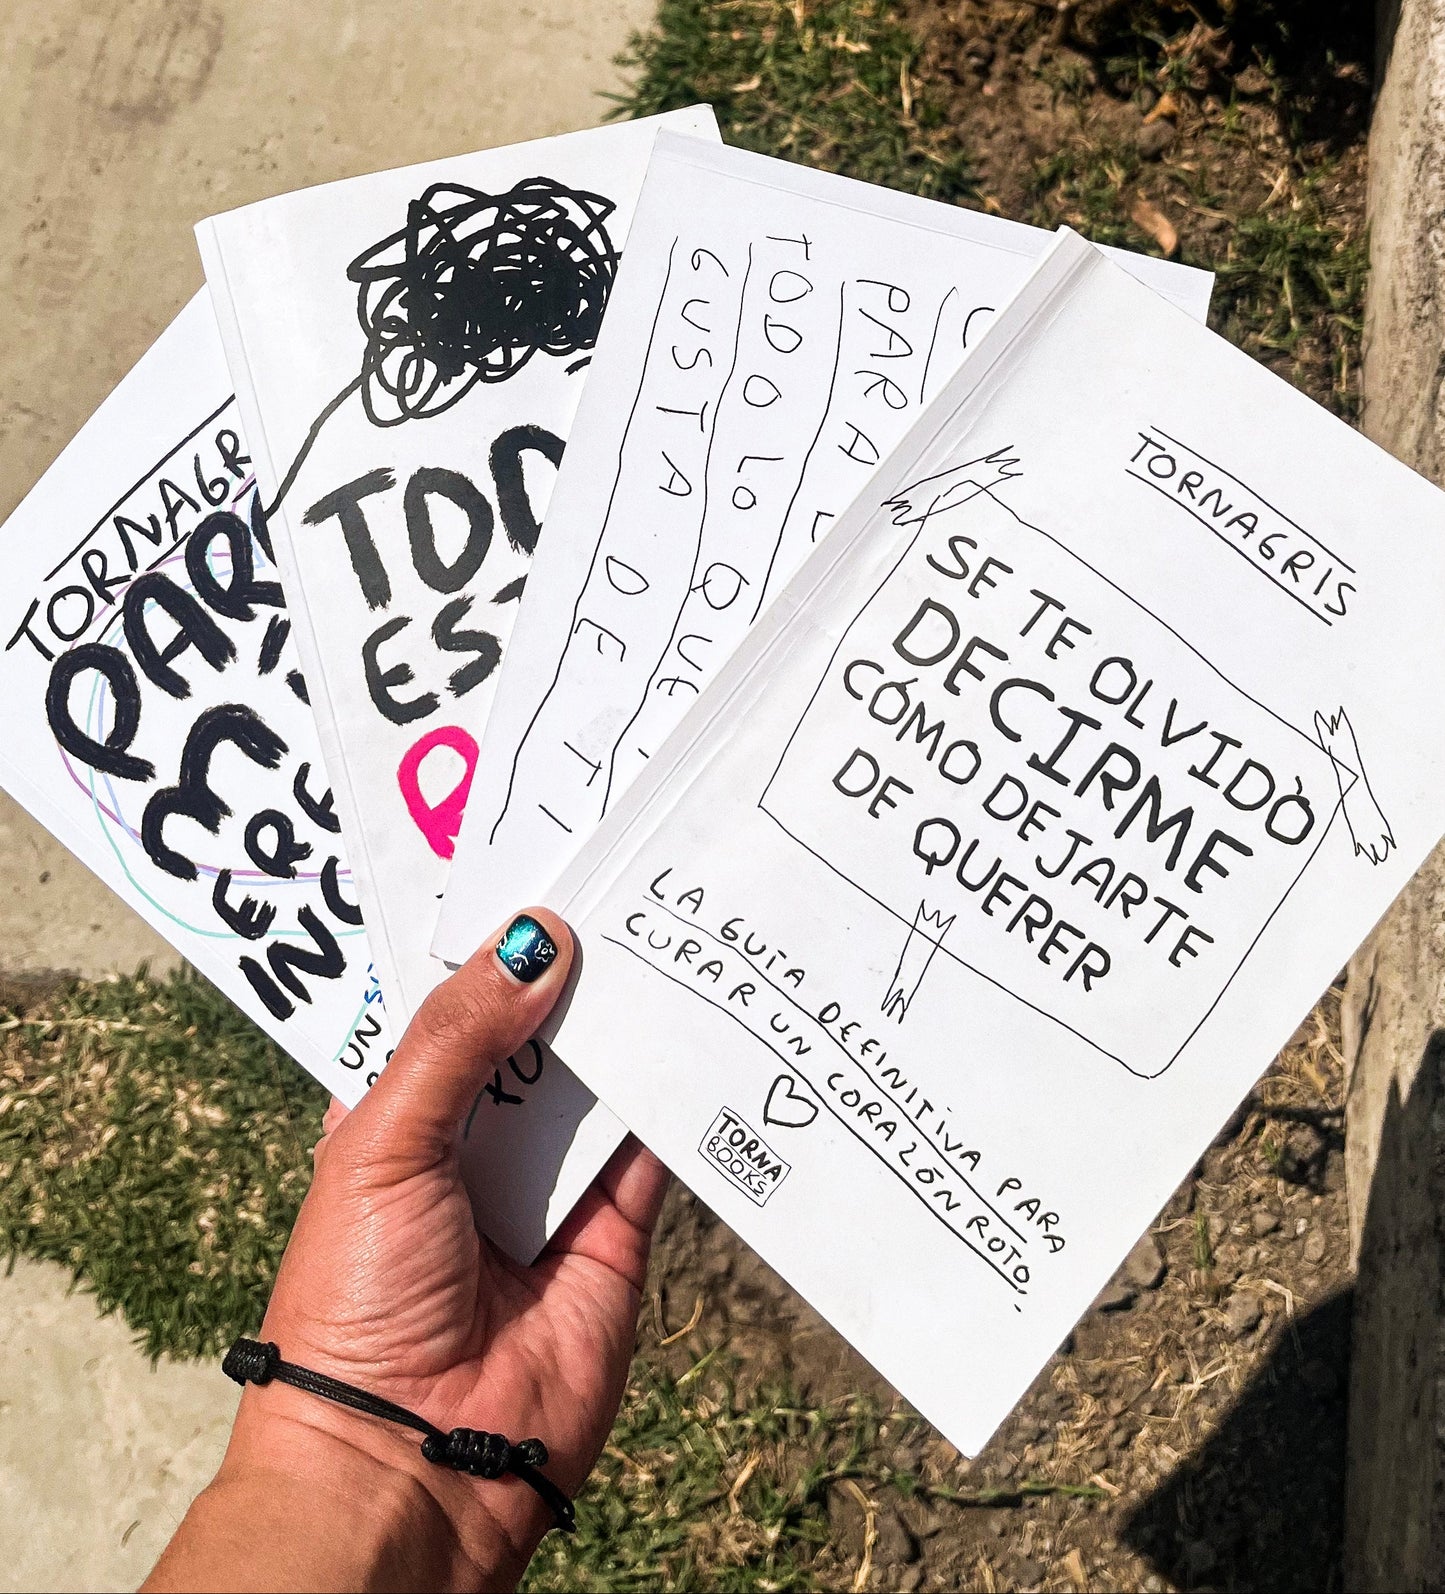 TORNAGR
PAR
M
ERE
INC
UN
TOD
EST
PARA L
TODO LO QUE
GUSTA DE TI
TORNAGRIS
SE TE OLVIDÒ
DECIRME
CÓMO DEJARTE
DE QUERER
LA GUÍA DEFINITIVA PARA
CURAR UN CORAZÓN ROTO.
TORNA
BOOKS